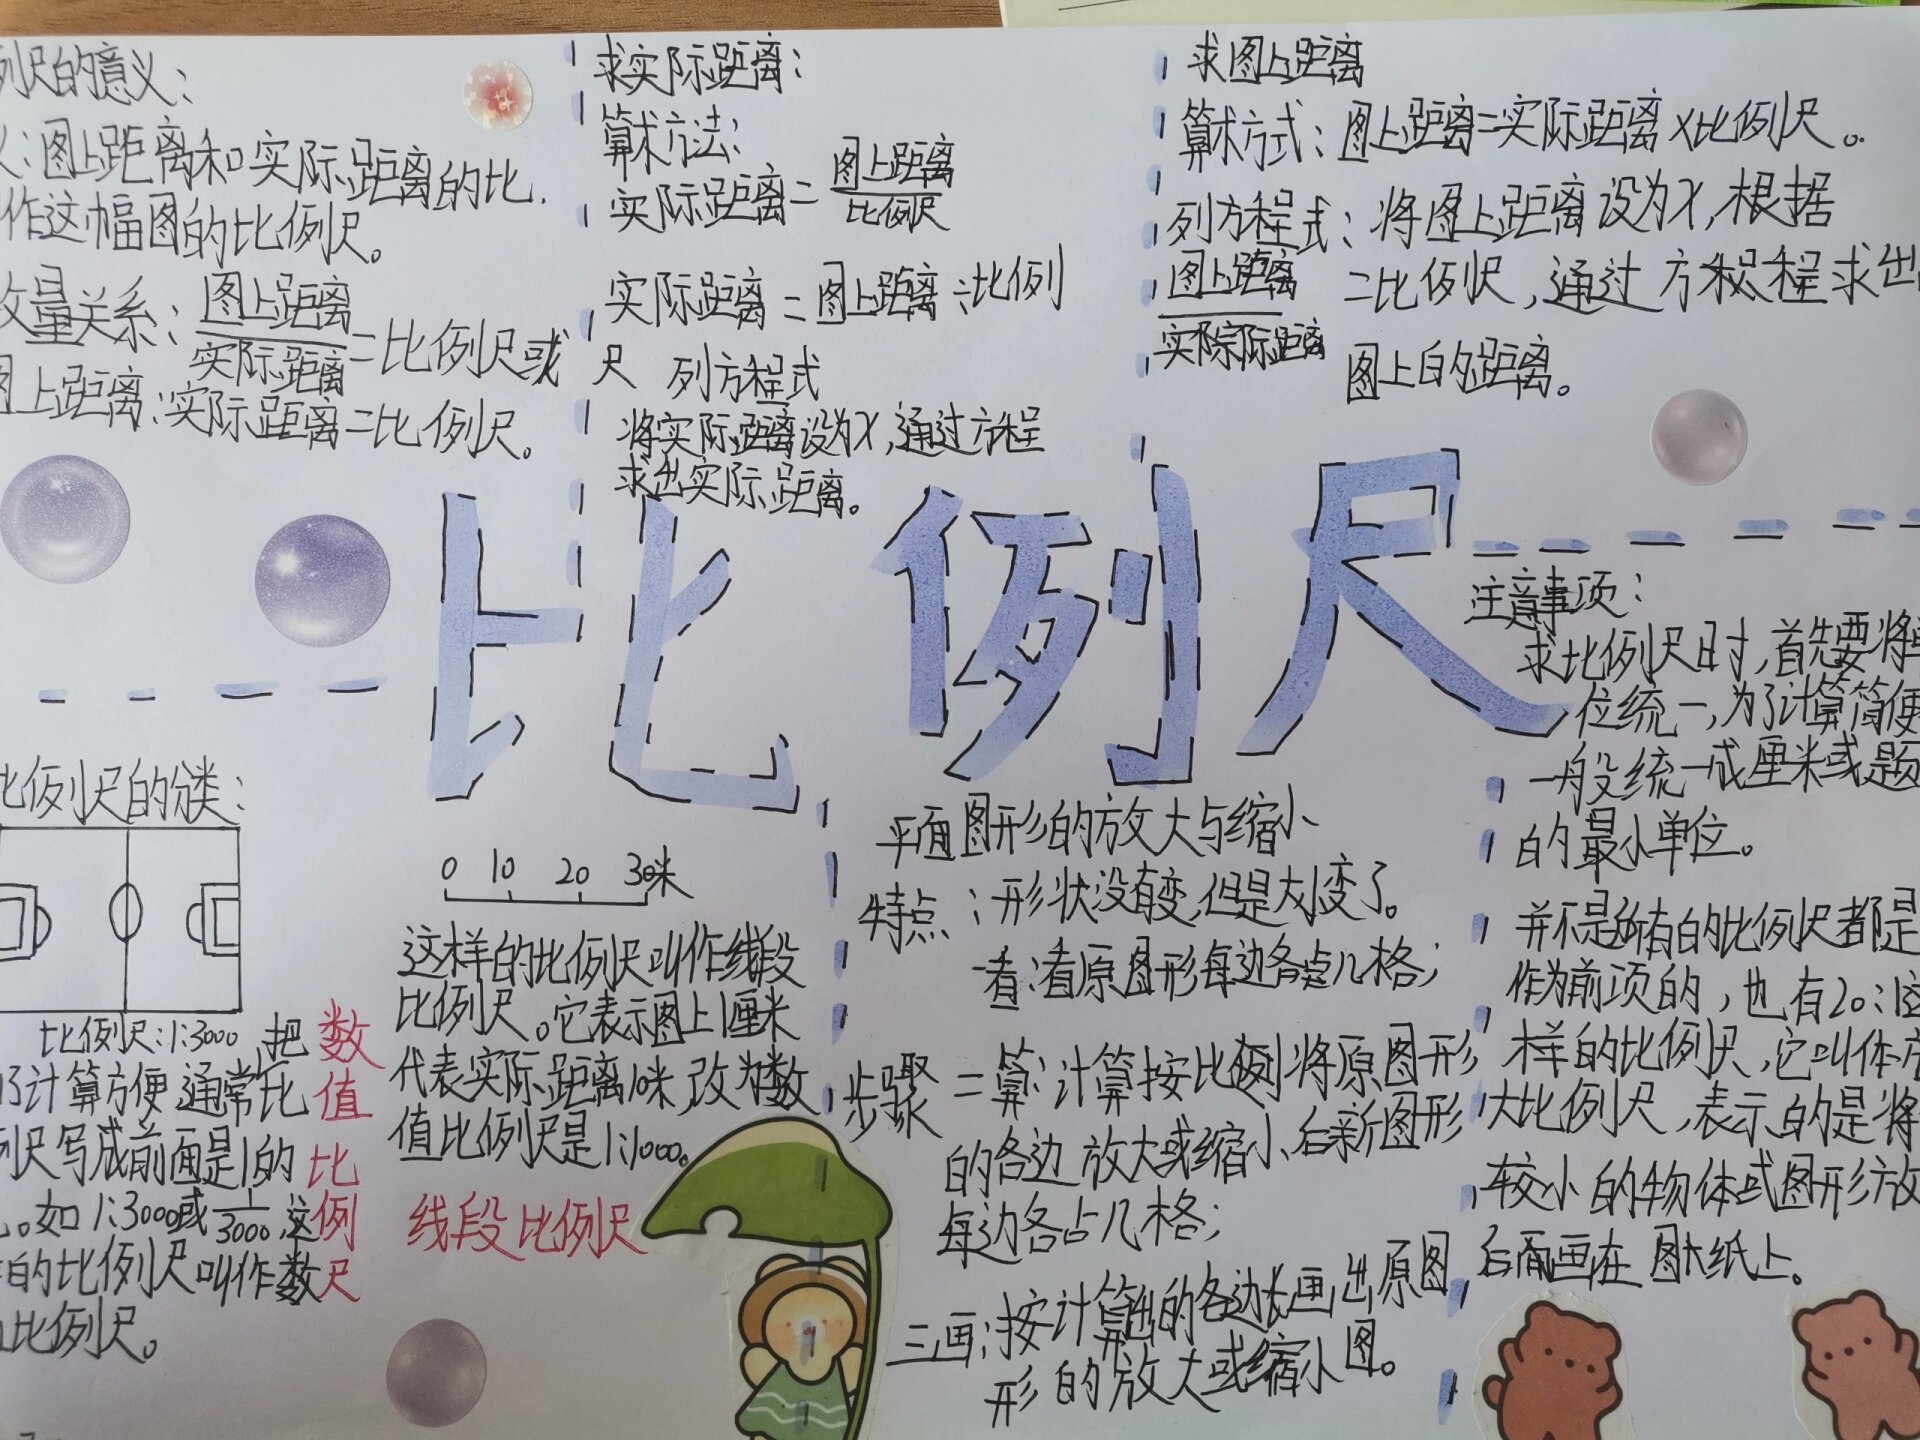 列尺的意义：
：图上距离和实际距离的比.
作这幅图的比例尺。
量关系：图上距离/实际距离=比例尺或
图上距离：实际距离=比例尺。
求实际距离：
算术方法：
实际距离=图上距离/比例尺
实际距离=图上距离÷比例
尺 列方程式
将实际距离设为X，通过方程
求出实际距离。
求图上距离
算术方式：图上距离=实际距离X比例尺。
列方程式：将图上距离设为X，根据
图上距离/实际距离=比例尺，通过方程求出
图上的距离。
比例尺
比例尺的分类：
比例尺：1:3000
了计算方便通常把比
例尺写成前面是1的
。如1:3000或1/3000，这
的比例尺叫作数
比例尺。
数值比例尺
0 10 20 30米
这样的比例尺叫作线段
比例尺。它表示图上1厘米
代表实际距离10米，改为数
值比例尺是1:1000。
线段比例尺
平面图形的放大与缩小
特点：形状没有变，但是大小变了。
步骤
一看：看原图形每边各占几格；
二算：计算按比例将原图形
的各边放大或缩小后新图形
每边各占几格；
三画：按计算出的各边长画出原图
形的放大或缩小图。
注意事项：
求比例尺时，首先要将单
位统一，为了计算简便
一般统一成厘米或题
的最小单位。
并不是所有的比例尺都是
作为前项的，也有20:1这
样的比例尺，它叫作放
大比例尺，表示的是将
较小的物体或图形放
后再画在图纸上。